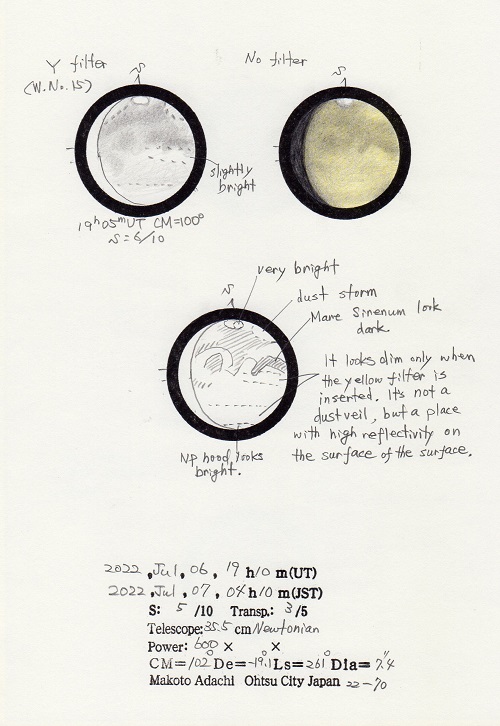 Y filter
(W.No.15)
No filter
S
S
slightly
bright
19h05mUT CM=100°
S=6/10
very bright
S
dust storm
Mare Sirenum look
dark.
It looks dim only when
the yellow filter is
inserted. It's not a
dust veil, but a place
with high reflectivity on
the surface of the surface.
NP hood looks
bright.
2022, Jul, 06, 19 h10 m(UT)
2022, Jul, 07, 04 h10 m(JST)
S: 5 /10 Transp.: 3 /5
Telescope: 35.5 cm Newtonian
Power: 600 × ×
CM=102° De=-19.1 Ls=261° Dia=7.4"
Makoto Adachi Ohtsu City Japan 22-70